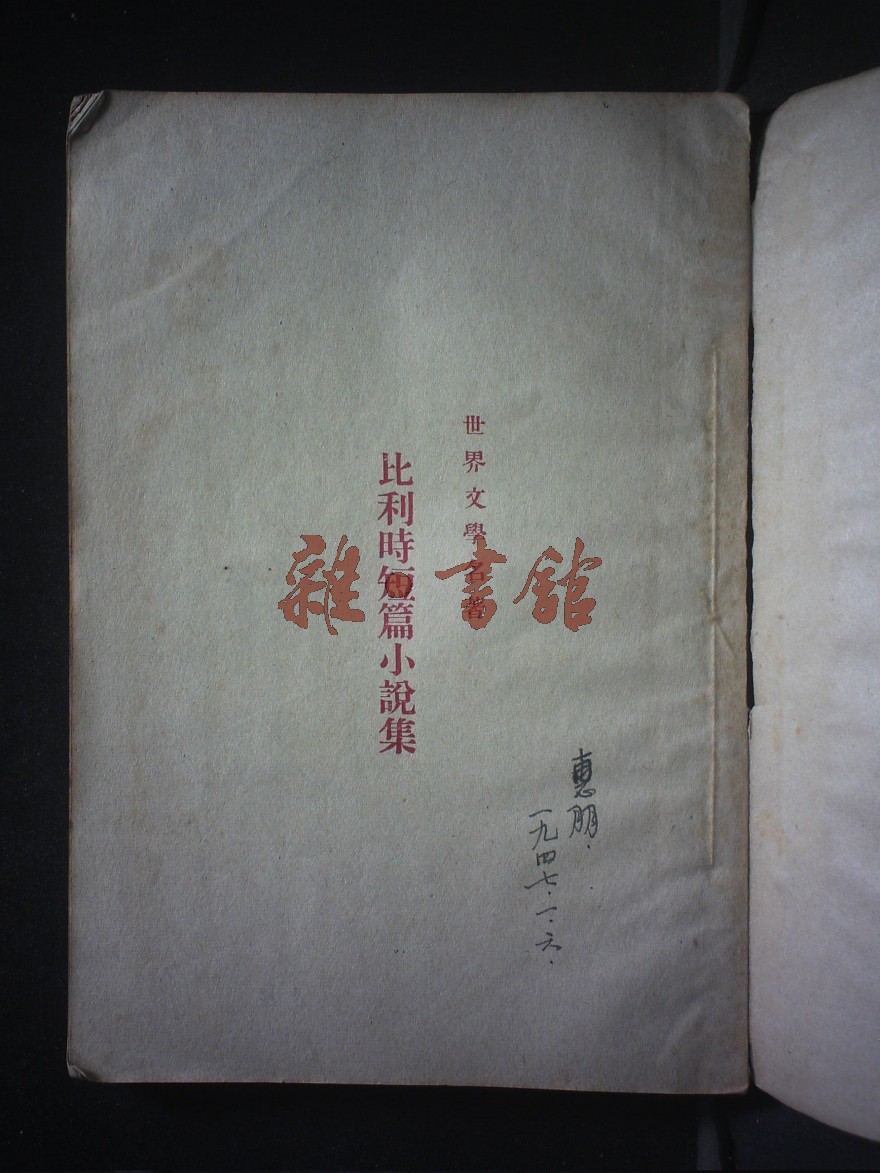 世界文學名著
比利時短篇小說集
雜書館
惠朋.
一九四七.一.六.